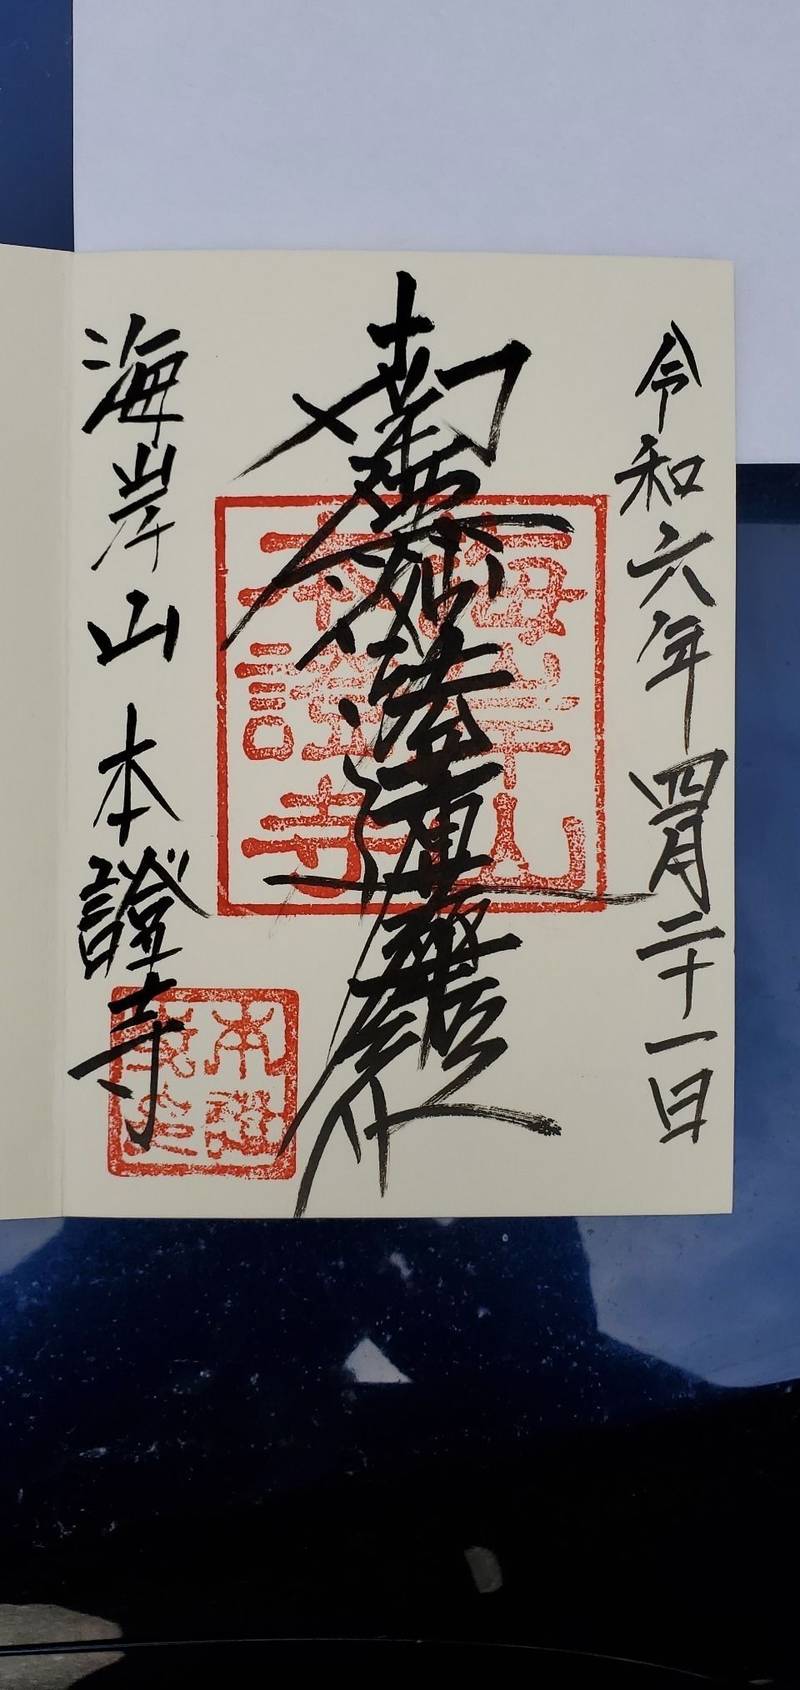 令和六年四月二十一日
南無妙法蓮華経
海岸山
本證寺
海岸山 本證寺
本證